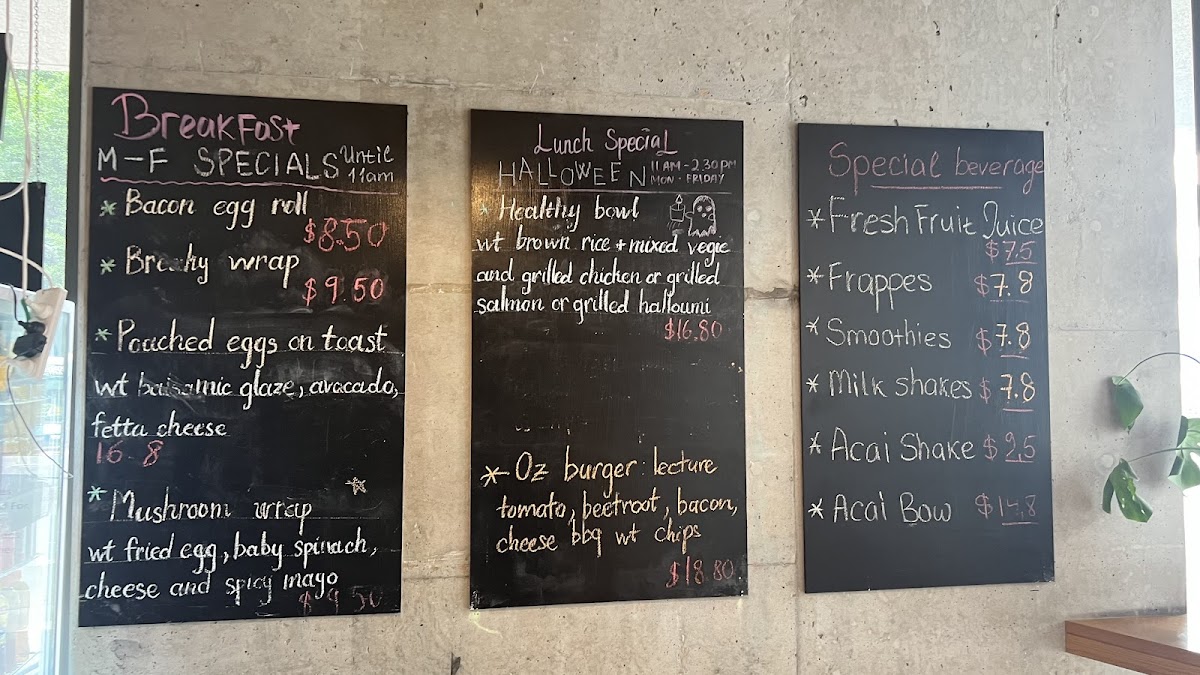 Breakfast
M-F SPECIALS Until 11am
* Bacon egg roll
$8.50
* Breaky wrap
$9.50
* Poached eggs on toast
wt balsamic glaze, avocado,
fetta cheese
16.8
* Mushroom wrap
wt fried egg, baby spinach,
cheese and spicy mayo
$9.50
Lunch Special
HALLOWEEN 11AM-2.30PM
MON-FRIDAY
* Healthy bowl
wt brown rice + mixed vegie
and grilled chicken or grilled
salmon or grilled halloumi
$16.80
* Oz burger: lecture
tomato, beetroot, bacon,
cheese bbq wt chips
$18.80
Special beverage
* Fresh Fruit Juice
$7.5
* Frappes $7.8
* Smoothies $7.8
* Milk shakes $7.8
* Acai Shake $9.5
* Acai Bow $14.8